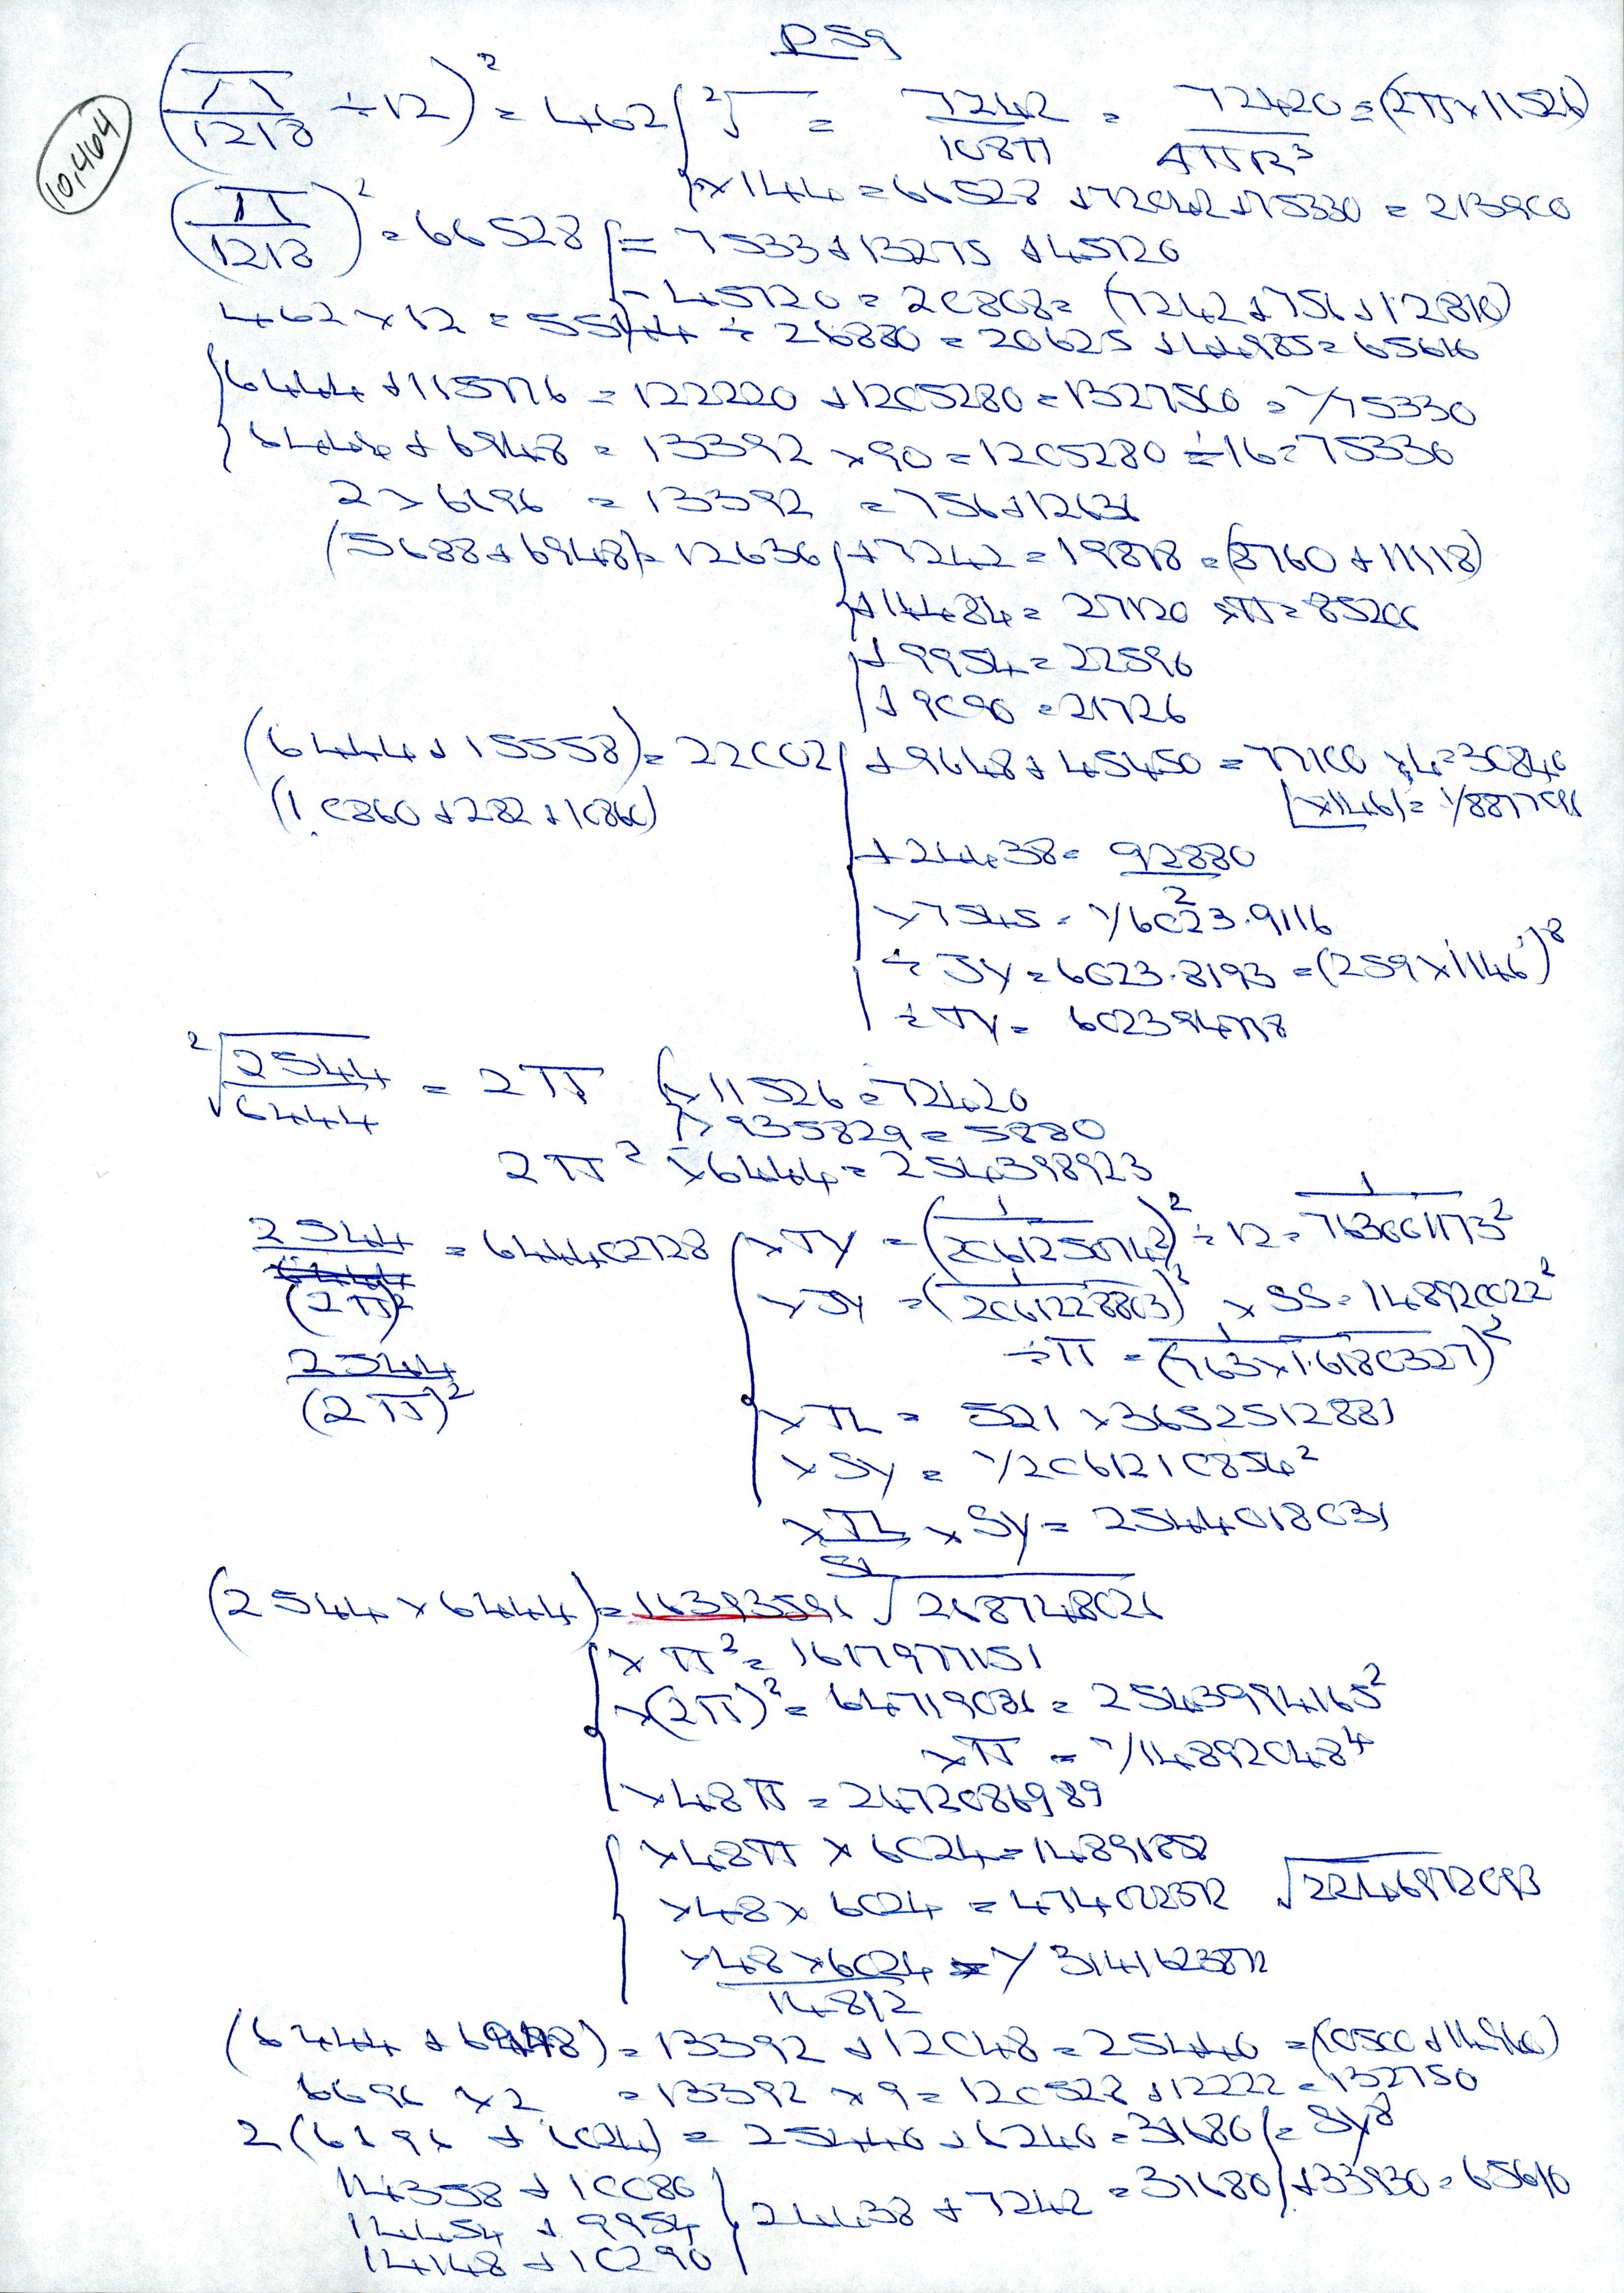 P59
10,464
(π/1218 ÷ 12)² = 462 { ²√ = 7242/108π = 72420/4πR³ = (2π × 11526)
× 144 = 66528 + 72042 + 75330 = 213900
(π/1218)² = 66528 { = 7533 + 13275 + 45720
- 45720 = 20808 = (7242 + 756 + 12810)
462 × 12 = 5544 ÷ 26880 = 20625 + 44985 = 65610
6444 + 115776 = 122220 + 1205280 = 1327500 = 1/75330
6444 + 6948 = 13392 × 90 = 1205280 ÷ 16 = 75330
2 × 6696 = 13392 = 756 + 12636
(5688 + 6948) = 12636 { + 7242 = 19878 = (8760 + 11118)
+ 14484 = 27120 × π = 85200
+ 9954 = 22596
+ 9090 = 21726
(6444 + 15558) = 22002 { + 9648 + 45450 = 77100 × 4 = 30840
(10860 + 282 + 10860)
× 1146 = 1/8877096
+ 24438 = 92880/2
× 7545 = 1/6023.9116
÷ JY = 6023.8193 = (259 × 1146)⁸
÷ TY = 602394778
²√2544/6444 = 2π { × 11526 = 72420
× 935829 = 5880
2π² × 6444 = 254398923
2544/(2π)² = 644402728 { × TY = (1/206125074²)² ÷ 12 = 1/713661173²
× JY = (1/2061228803)² × SS = 148920022²
2544/(2π)²
÷ π = 1/(763 × 1.6180327)²
× TL = 521 × 3652512881
× SY = 1/2061210854²
× JL/SL × SY = 2544018031
(2544 × 6444) = 16393591 √268748026
× π² = 1617977151
× (2π)² = 64719086 = 2543994165²
× π = 1/14892048⁴
× 48π = 2472086989
× 48π × 6024 = 14891858
× 48 × 6024 = 474022372 √2246972093
× 48 × 6024/14812 = 1/3141623872
(6444 + 6948) = 13392 + 12048 = 25440 = (10500 + 14940)
6696 × 2 = 13392 × 9 = 120528 + 12222 = 132750
2(6696 + 6024) = 25440 + 6240 = 31680 { = SY⁸
14358 + 10080 } 24438 + 7242 = 31680 } + 33930 = 65610
14454 + 9954
14148 + 10290